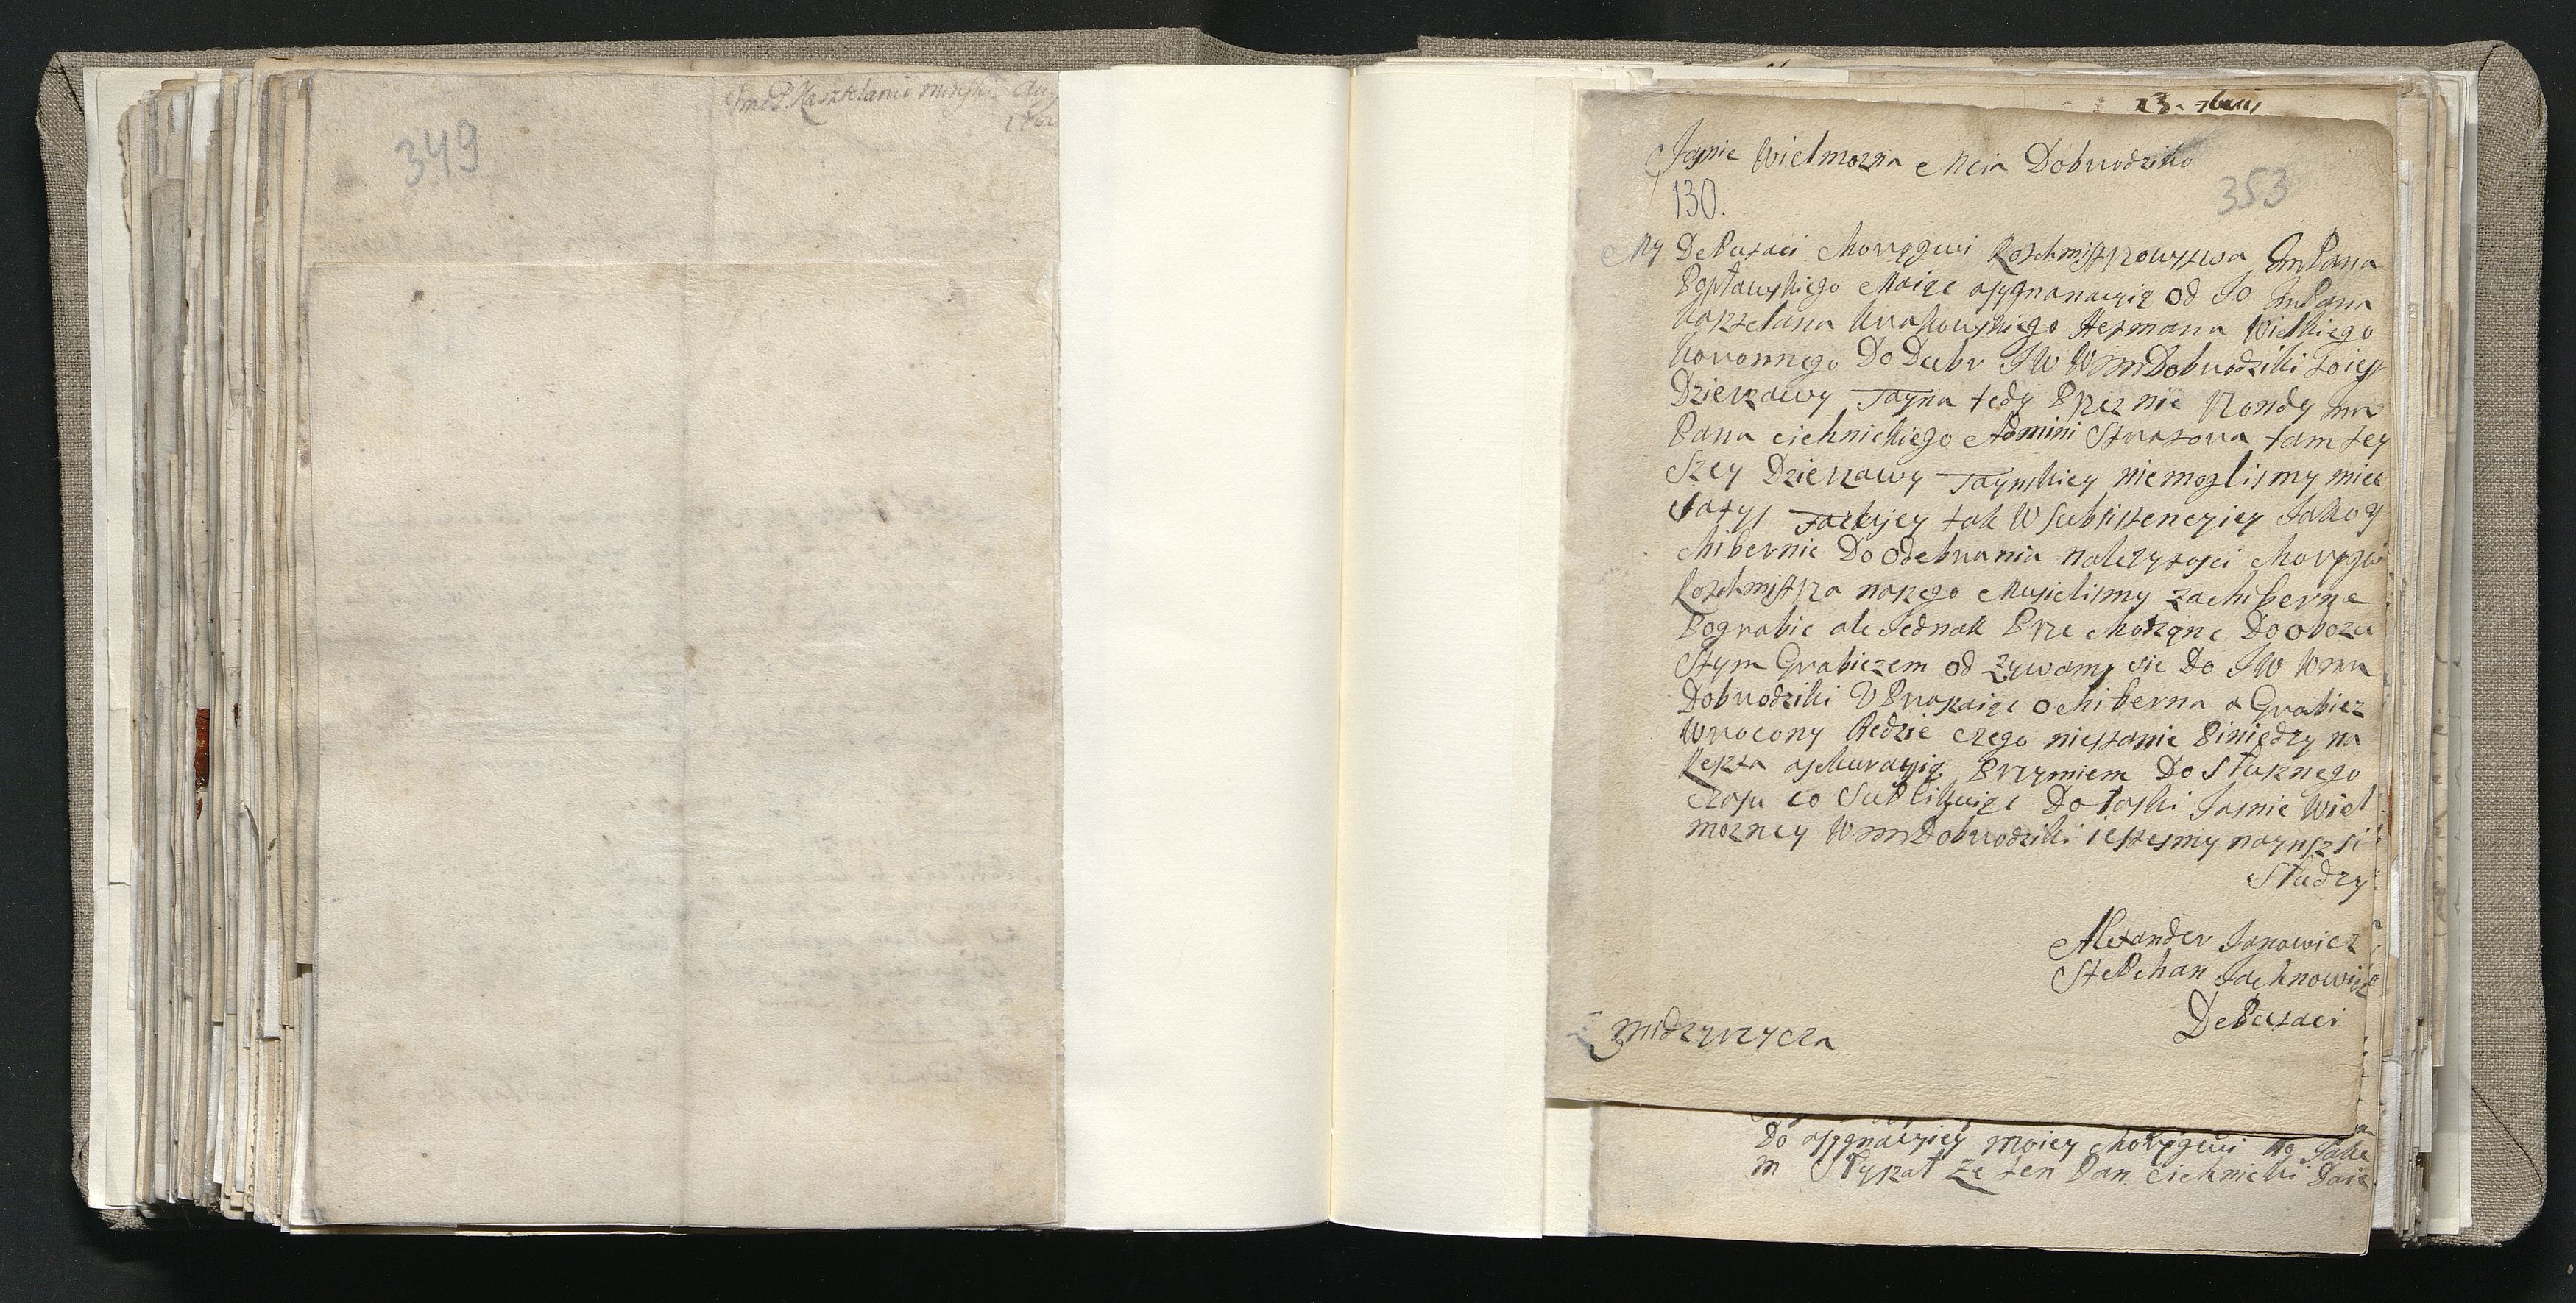 349
ImeP. Kasztelanic Minski. Aug
13
Jasnie Wielmozna Mcia Dobrodziko
130.
353
My DePutaci Chorągwi Rotchmistrzowstwa ImPana
Popławskiego Maiąc assygnanacyią od Jo ImPana
Kasztelana Krakowskiego Hetmana Wielkiego
Koronnego Do Dubr JW WmmDobrodziki to iest
Dzierzawy Tayna tedy Przez nie Rondy mm
Pana cichnickiego Admini Stratora tam tey
Szey Dzierzawy Taynskiey niemoglismy miec
satys facksjey tak W Subsistencyiey Jako y
chibernie Do Odebrania nalezytosci Chorągwi
Rotchmistrza naszego Musielismy za chiberne
Pograbic ale Jednak Prze chodząnc Do obozu
Stym Grabiezem od zywamy sie Do JW Wmm
Dobrodziki UPraszaiąc o chiberna a Grabiez
Wrocony Bedzie czego niestanie Piniędzy na
Reszta assekuracyią Przymiem Do Słusznego
czasu co SuPlikuiąc Do łaski Jasnie Wiel
mozney WmmDobrodziki iestesmy naynszsi
Słudzy
Alexander Janowicz
StePchan Jachnowicz
DePutaci
Z Midzyrzycza
Do assygnacyiey moiey chorągwi
m Słyszał ze ten Pan Cichnicki Daie